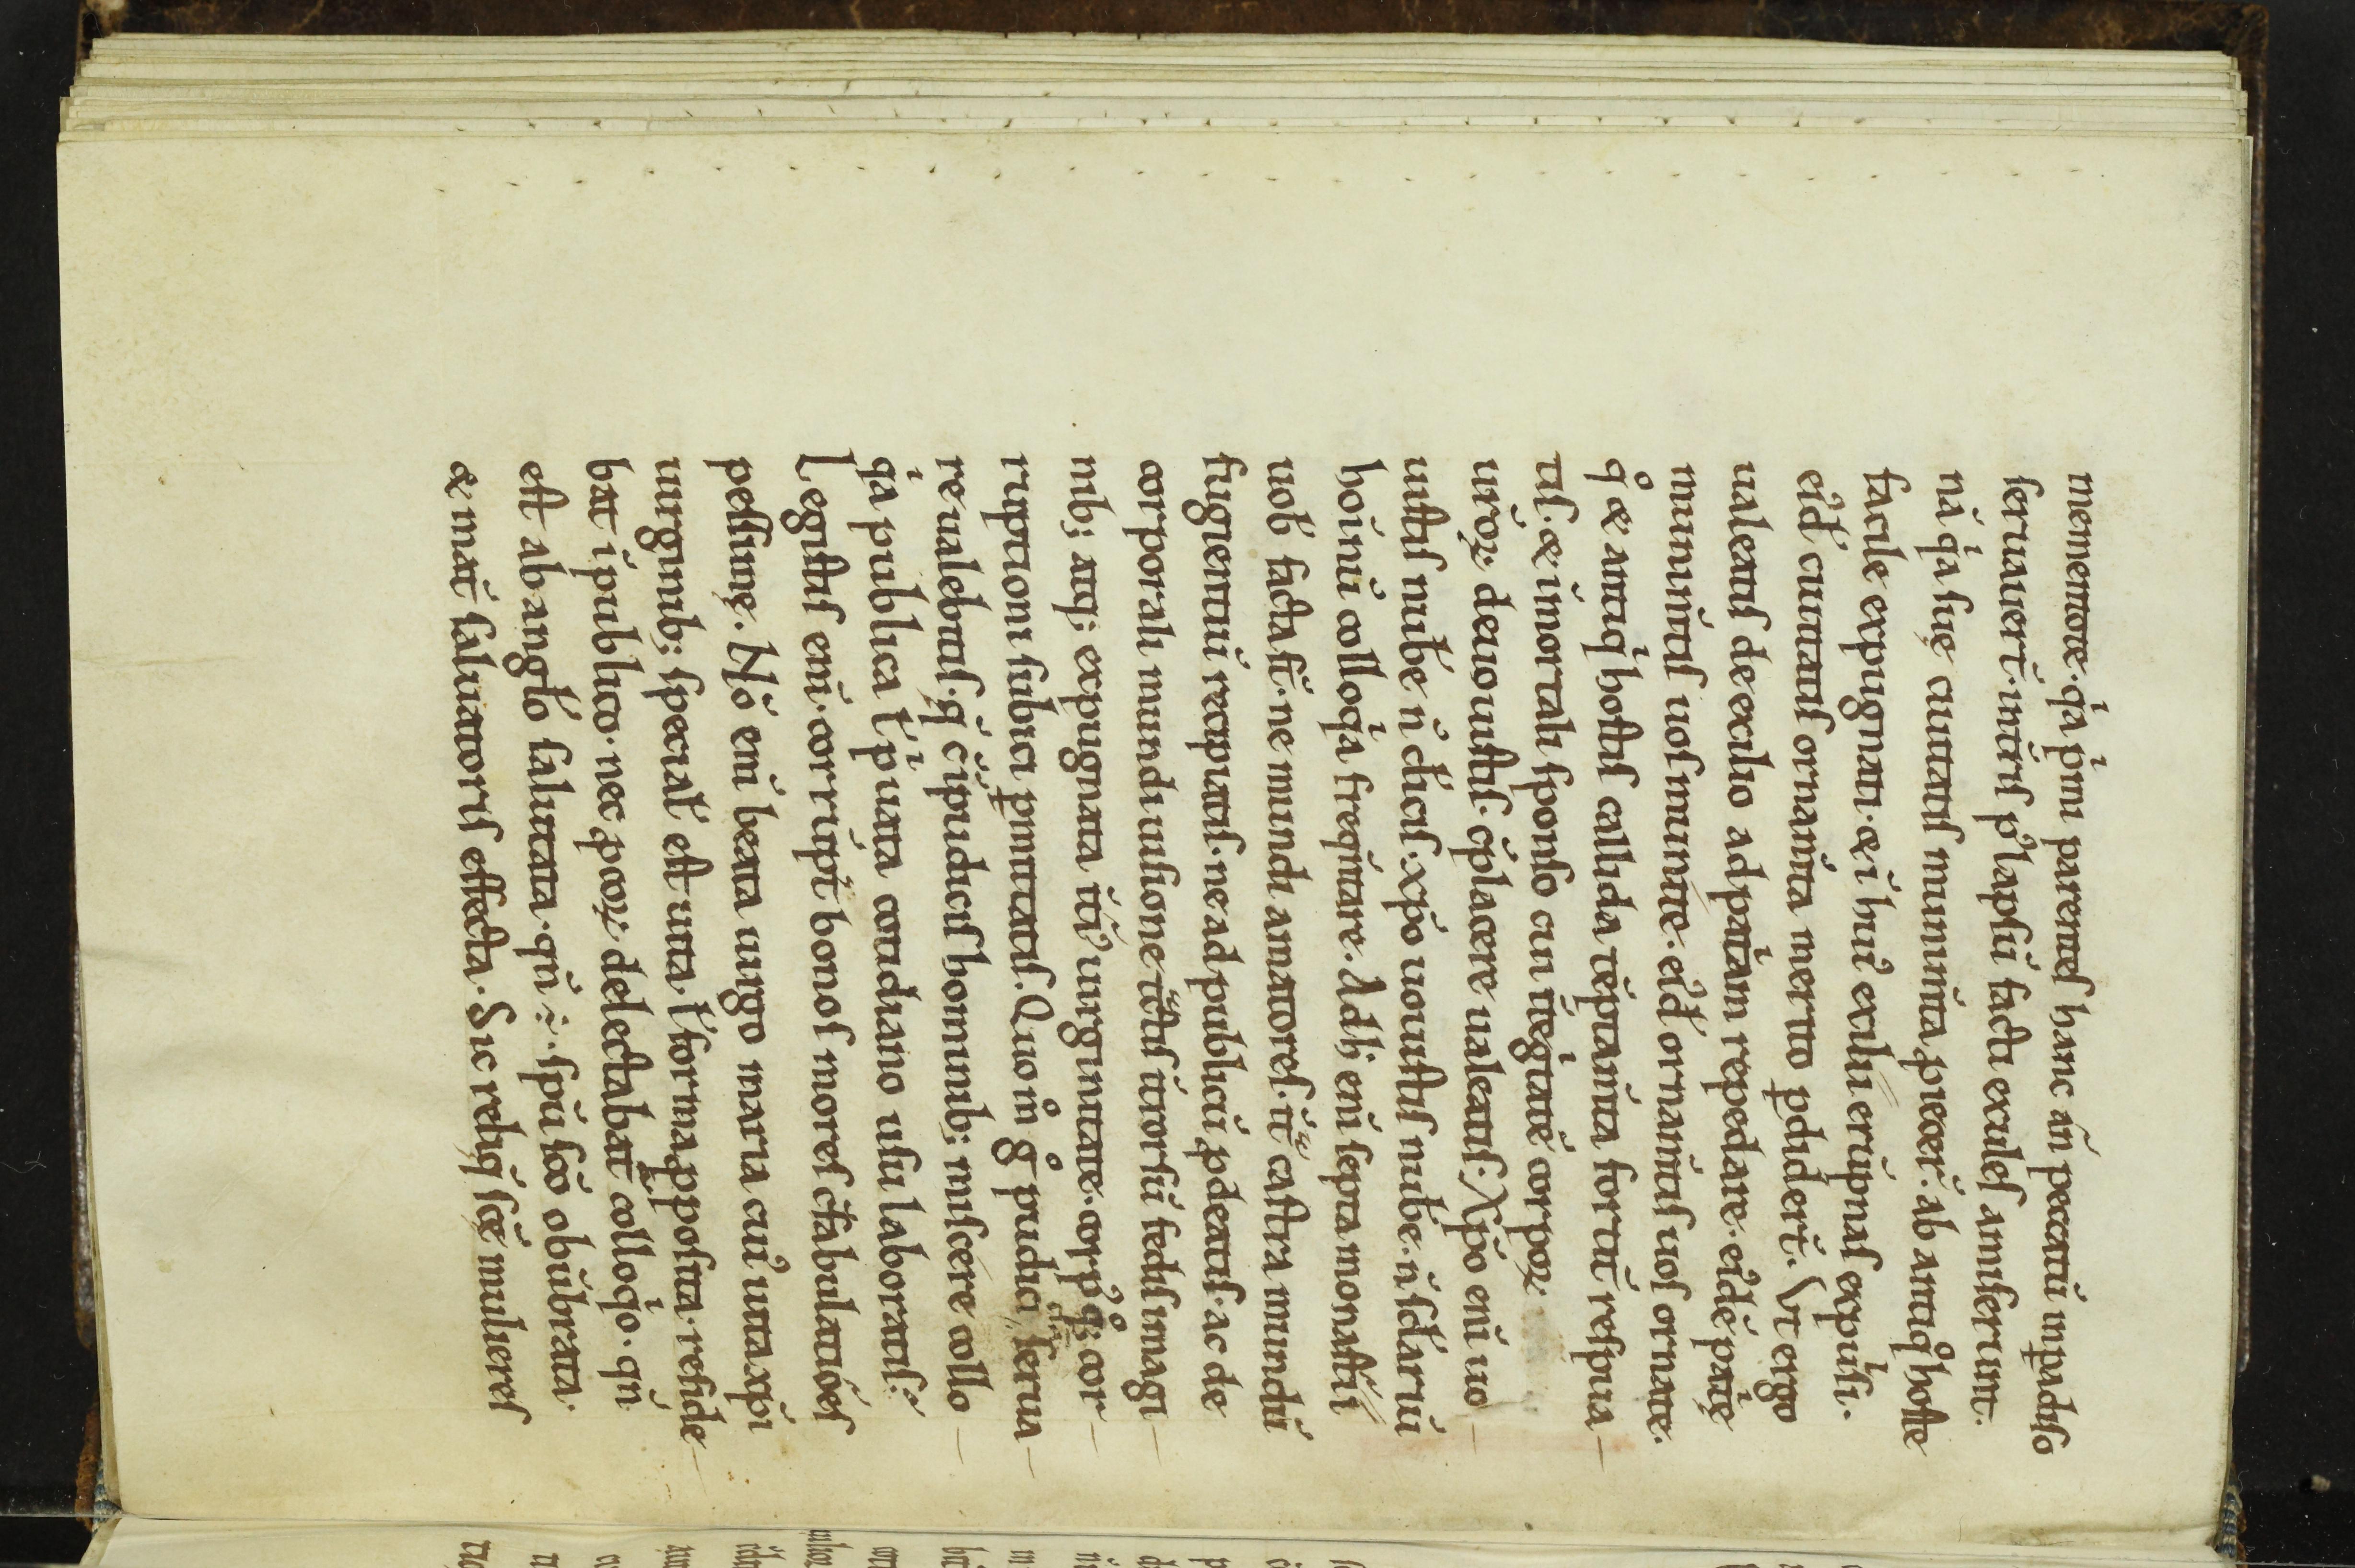 mementote. qͥa pͥmi parentes hanc añ peccatū inꝑadiso
seruauert̄. int̄tis pͥ lapsū facti exules amiserunt.
nā qͥa sue ciuitatis munim̄ta piecer̄. ab antiqͦ hoste
facile expugnati. & ī huiꝰ exilii erūpnas expulsi.
eisd̄ ciuitatis ornam̄ta merito ꝑdidert̄. Vt ergo
ualeatis de exilio ad patͥam repedare. eisdē patͥę
munim̄tis uos munite. eisd̄ ornam̄tis uos ornate.
qͦ & antiqͥ hostis callida tēptam̄ta fortit̄ respua
tis. & īmortali sponso cū ītegͥtate corpoꝝ
uroꝝ. deuouistis. ɔplacere ualeatis. Xp̄o eni uo
uistis nub̄e n̄ dicis. xp̄o uouistis nub̄e. n̄ sclariū
hoinū colloqͥa freqn̄tare. Adh̄ eni septa monastͥi
uob̄ facta st̄. ne mundi amatores. īt̄ castra mundū
fugientiū recipiatis. ne ad publicū ꝓdeatis. ac de
corporali mundi uisione ītrorsū fedis imagi
nib; atq; expugnata uirginitate. corpoꝝ q; cor
ruptioni subici ꝑmittatis. Quo m̊ g̊ pudici serua
re ualebitis. q̄ cū īpudicis hominib; miscere collo
qͥa publica ł pͥuata cotidiano usu laboratis.
Legistis eni. corrūpt̄ bonos mores ɔfabulatōes
pessimę. Nō eni beata uirgo maria cuiꝰ uita xp̄i
uirginib; special̄ est uita. ł forma ꝓposita. reside
bat ī publico. nec ꝓcoꝝ delectabat̄ colloqͥo. qn̄
est ab anglo salutata. qn̄ .ī. spu sco obūbrata
& mat̄ saluatoris effecta. Sic reliqͥ scē mulieres